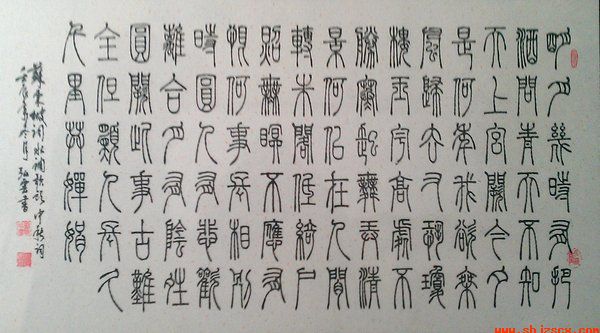 明月幾時有把
酒問青天不知
天上宮闕今夕
是何年我欲乘
風歸去又恐瓊
樓玉宇高處不
勝寒起舞弄清
景何佀在人間
轉朱閣低綺戶
照無眠不應有
恨何事長相別
時圓人有悲歡
離合月有陰晴
圓闕此事古難
全但願人長久
千里共嬋娟
蘇東坡詞水調歌頭中秋詞
壬辰年冬月
www.shjzscx.com